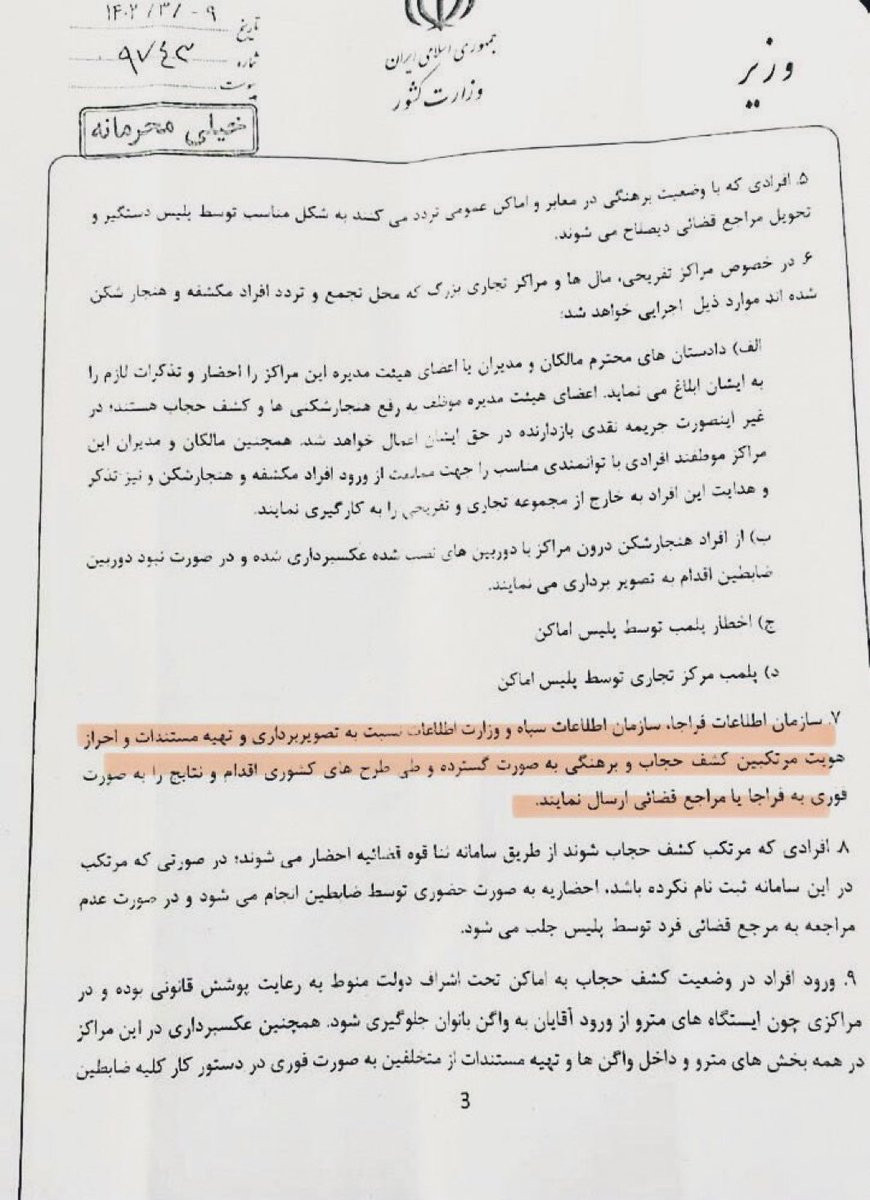 تاریخ ۱۴۰۲/۳/۰۹
جمهوری اسلامی ایران
وزیر
شماره ۹۷۴۳
وزارت کشور
پیوست
خیلی محرمانه
۵. افرادی که با وضعیت برهنگی در معابر و اماکن عمومی تردد می کنند به شکل مناسب توسط پلیس دستگیر و
تحویل مراجع قضائی ذیصلاح می شوند.
۶ در خصوص مراکز تفریحی، مال ها و مراکز تجاری بزرگ که محل تجمع و تردد افراد مکشفه و هنجار شکن
شده اند موارد ذیل اجرایی خواهد شد:
الف) دادستان های محترم مالکان و مدیران یا اعضای هیئت مدیره این مراکز را احضار و تذکرات لازم را
به ایشان ابلاغ می نماید. اعضای هیئت مدیره موظف به رفع هنجارشکنی ها و کشف حجاب هستند؛ در
غیر اینصورت جریمه نقدی بازدارنده در حق ایشان اعمال خواهد شد. همچنین مالکان و مدیران این
مراکز موظفند افرادی با توانمندی مناسب را جهت ممانعت از ورود افراد مکشفه و هنجارشکن و نیز تذکر
و هدایت این افراد به خارج از مجموعه تجاری و تفریحی را به کارگیری نمایند.
ب) از افراد هنجارشکن درون مراکز با دوربین های نصب شده عکسبرداری شده و در صورت نبود دوربین
ضابطین اقدام به تصویر برداری می نمایند.
ج) اخطار پلمب توسط پلیس اماکن
د) پلمب مرکز تجاری توسط پلیس اماکن
۷. سازمان اطلاعات فراجا، سازمان اطلاعات سپاه و وزارت اطلاعات نسبت به تصویربرداری و تهیه مستندات و احراز
هویت مرتکبین کشف حجاب و برهنگی به صورت گسترده و طی طرح های کشوری اقدام و نتایج را به صورت
فوری به فراجا یا مراجع قضائی ارسال نمایند.
۸ افرادی که مرتکب کشف حجاب شوند از طریق سامانه ثنا قوه قضائیه احضار می شوند؛ در صورتی که مرتکب
در این سامانه ثبت نام نکرده باشد، احضاریه به صورت حضوری توسط ضابطین انجام می شود و در صورت عدم
مراجعه به مرجع قضائی فرد توسط پلیس جلب می شود.
۹. ورود افراد در وضعیت کشف حجاب به اماکن تحت اشراف دولت منوط به رعایت پوشش قانونی بوده و در
مراکزی چون ایستگاه های مترو از ورود آقایان به واگن بانوان جلوگیری شود. همچنین عکسبرداری در این مراکز
در همه بخش های مترو و داخل واگن ها و تهیه مستندات از متخلفین به صورت فوری در دستور کار کلیه ضابطین
3